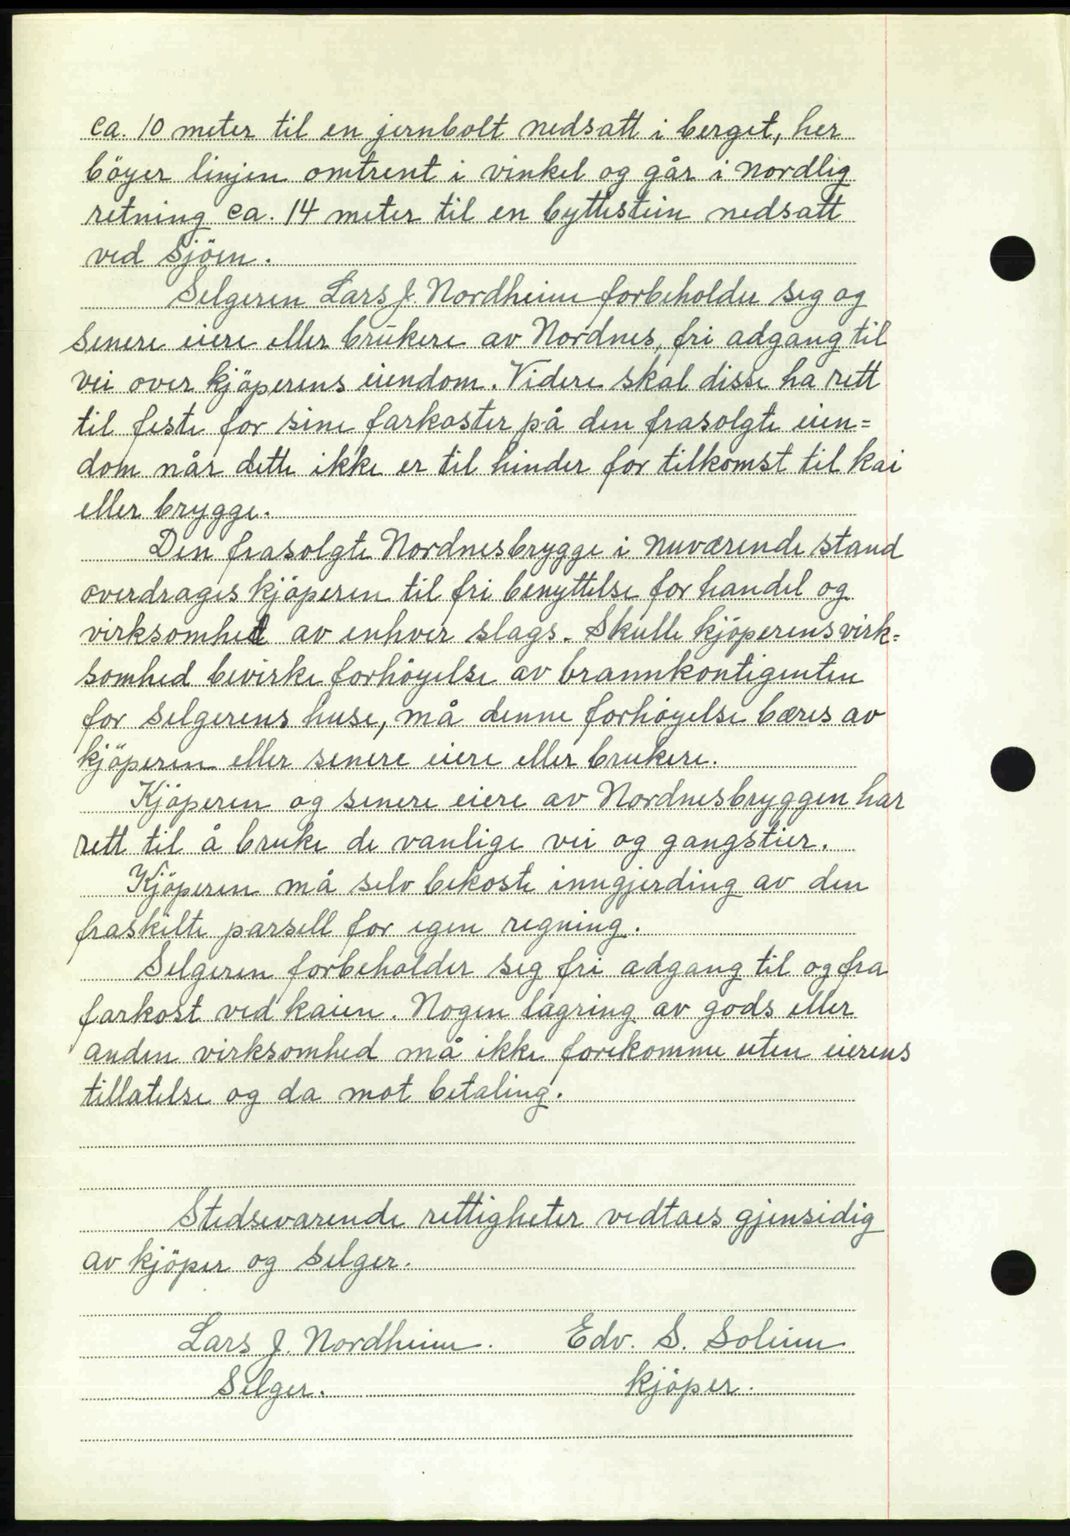 ca. 10 meter til en jernbolt nedsatt i berget, her
böyer linjen omtrent i vinkel og går i nordlig
retning ca. 14 meter til en byttestein nedsatt
ved sjöen.
Selgeren Lars J. Nordheim forbeholder seg og
senere eiere eller brukere av Nordnes, fri adgang til
vei over kjöperens eiendom. Videre skal disse ha rett
til feste for sine farkoster på den frasolgte eien=
dom når dette ikke er til hinder for tilkomst til kai
eller brygge.
Den frasolgte Nordnesbrygge i nuværende stand
overdrages kjöperen til fri benyttelse for handel og
virksomhet av enhver slags. Skulle kjöperens virk=
somhed bevirke forhöyelse av brannkontigenten
for selgerens huse, må denne forhöyelse bæres av
kjöperen eller senere eiere eller brukere.
Kjöperen og senere eiere av Nordnesbryggen har
rett til å bruke de vanlige vei og gangstier.
Kjöperen må selv bekoste inngjerding av den
fraskilte parsell for egen regning.
Selgeren forbeholder seg fri adgang til og fra
farkost ved kaien. Nogen lagring av gods eller
anden virksomhed må ikke forekomme uten eierens
tillatelse og da mot betaling.
Stedsevarende rettigheter vedtaes gjensidig
av kjöper og selger.
Lars J. Nordheim. Edv. S. Solum
Selger. kjöper.